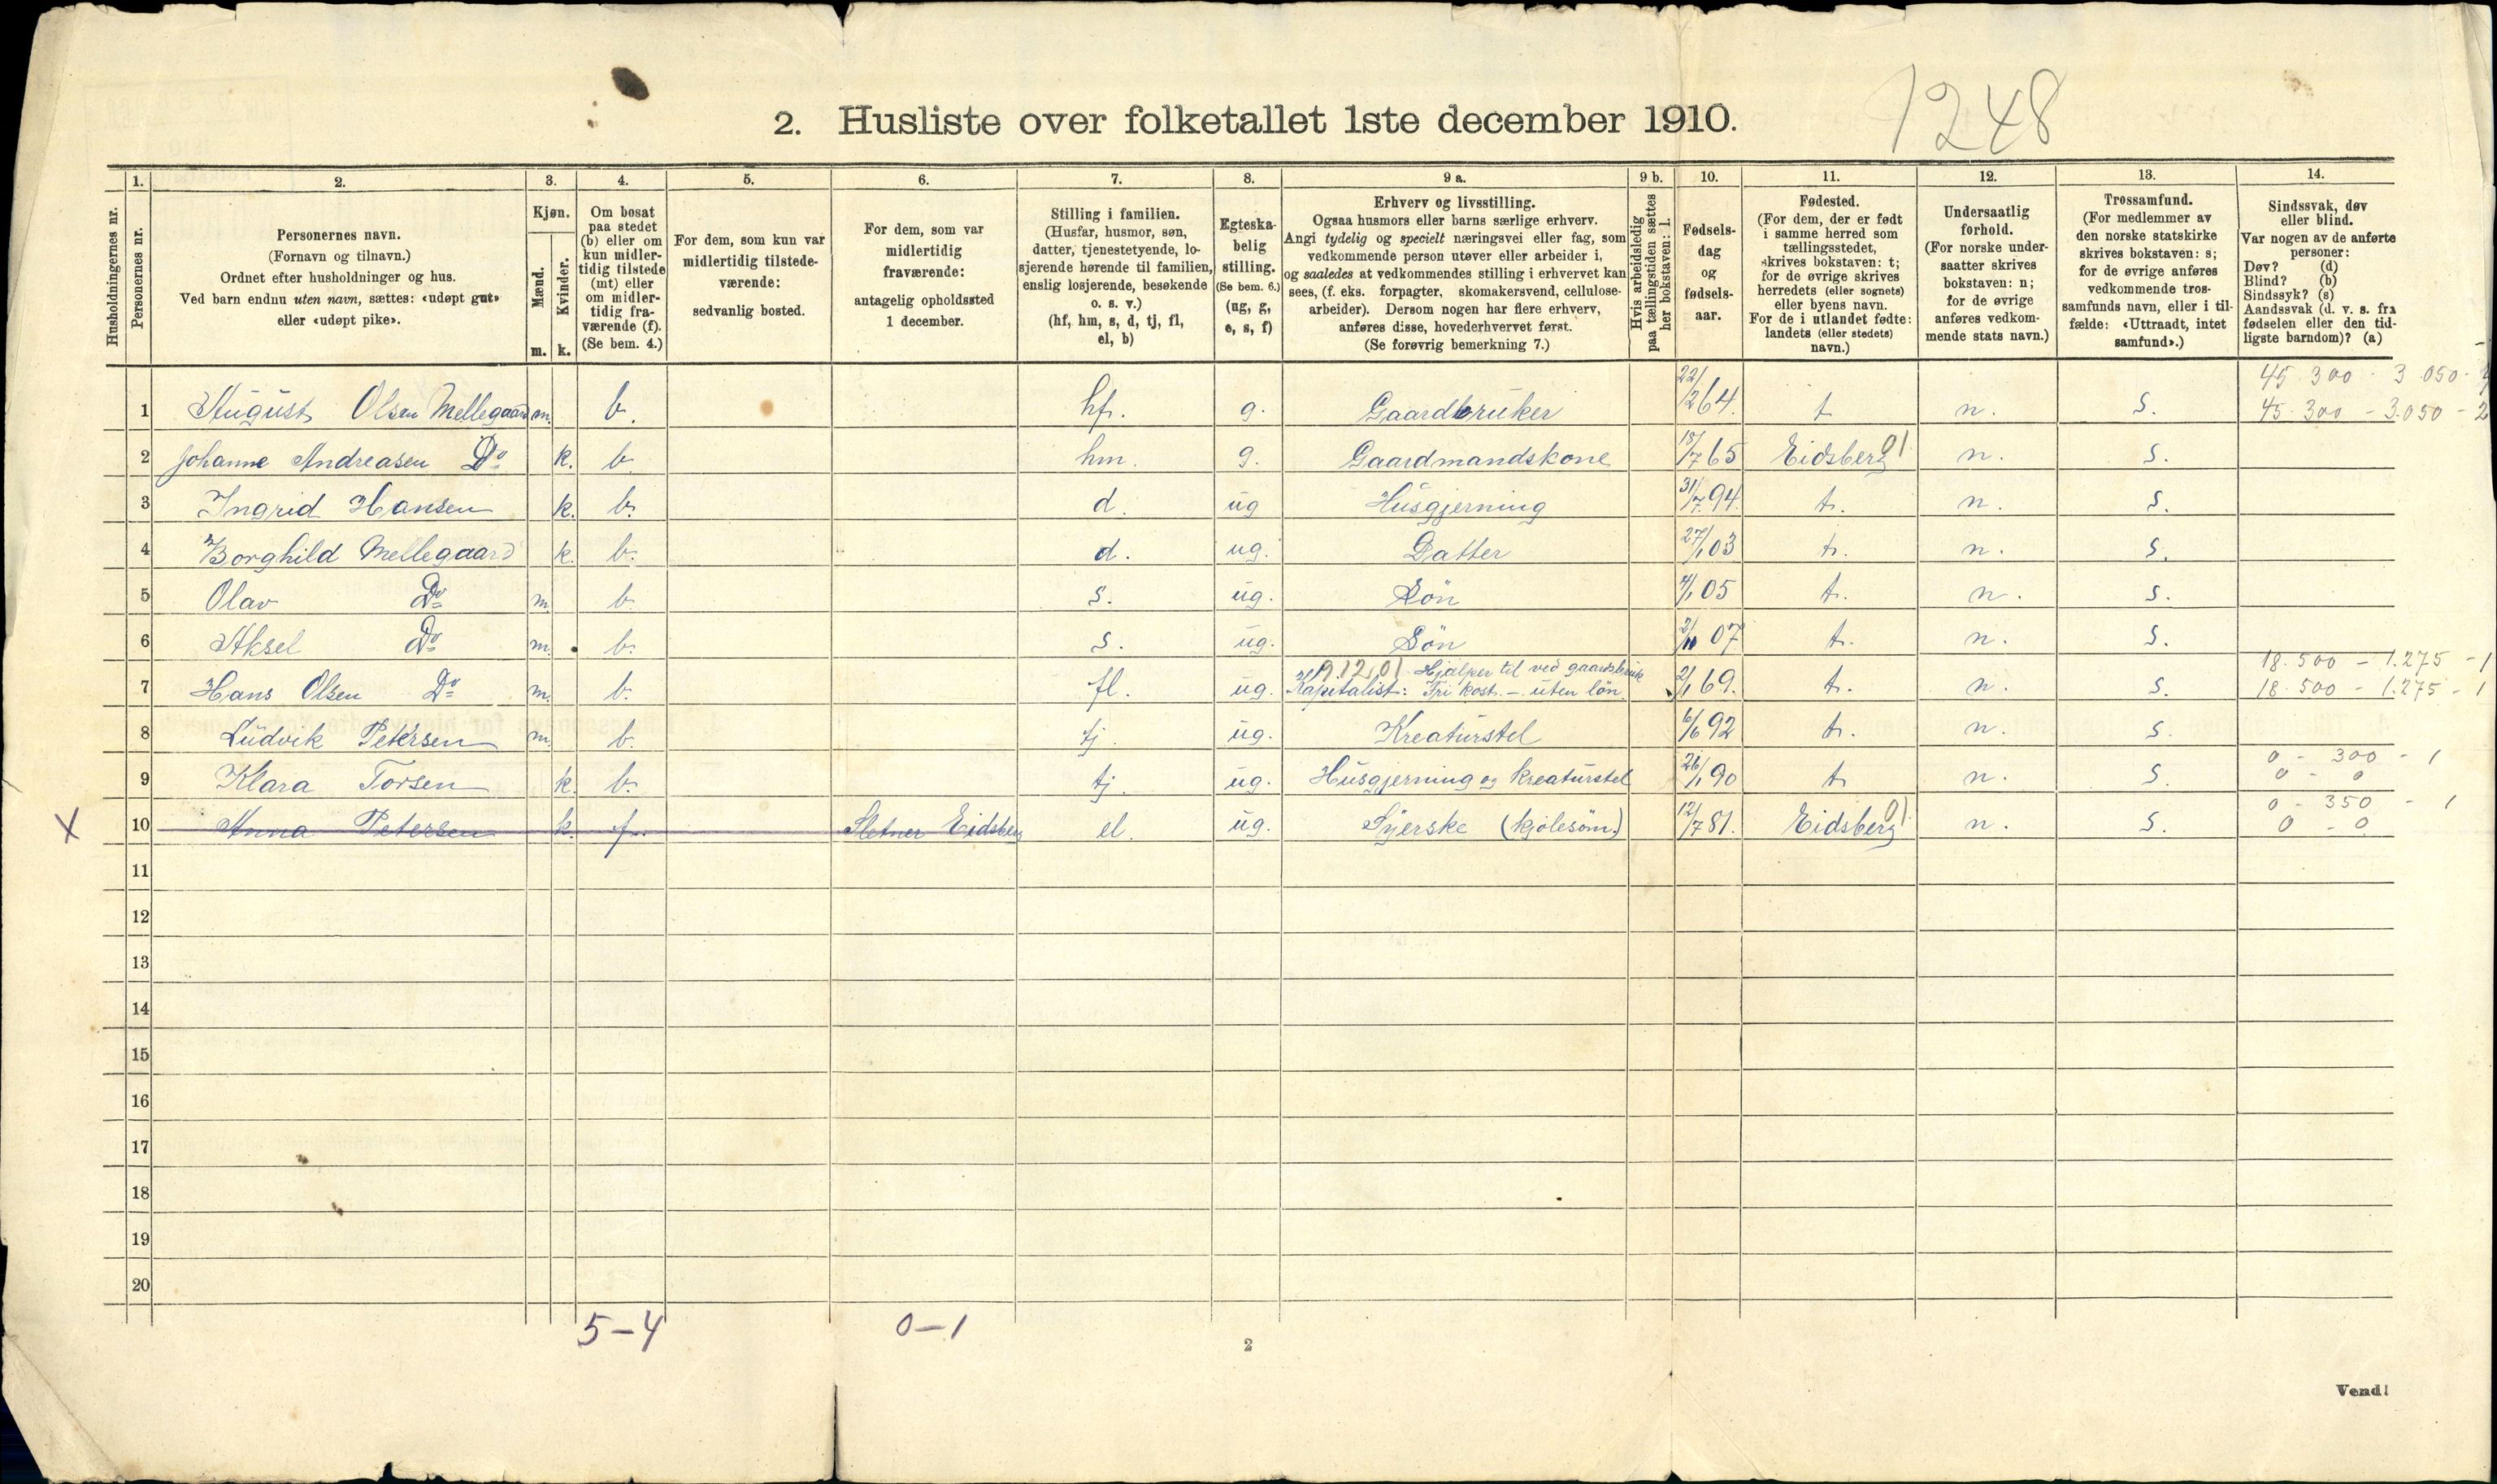 1248
2. Husliste over folketallet 1ste december 1910.
1. 2. 3. 4. 5. 6. 7. 8. 9 a. 9 b. 10. 11. 12. 13. 14.
Husholdningernes nr.
Personernes nr.
Personernes navn.
(Fornavn og tilnavn.)
Ordnet efter husholdninger og hus.
Ved barn endnu uten navn, sættes: «udøpt gut»
eller «udøpt pike».
Kjøn.
Mænd.
Kvinder.
m. k.
Om bosat
paa stedet
(b) eller om
kun midler-
tidig tilstede
(mt) eller
om midler-
tidig fra-
værende (f).
(Se bem. 4.)
For dem, som kun var
midlertidig tilstede-
værende:
sedvanlig bosted.
For dem, som var
midlertidig
fraværende:
antagelig opholdssted
1 december.
Stilling i familien.
(Husfar, husmor, søn,
datter, tjenestetyende, lo-
sjerende hørende til familien,
enslig losjerende, besøkende
o. s. v.)
(hf, hm, s, d, tj, fl,
el, b)
Egteska-
belig
stilling.
(Se bem. 6.)
(ug, g,
e, s, f)
Erhverv og livsstilling.
Ogsaa husmors eller barns særlige erhverv.
Angi tydelig og specielt næringsvei eller fag, som
vedkommende person utøver eller arbeider i,
og saaledes at vedkommendes stilling i erhvervet kan
sees, (f. eks. forpagter, skomakersvend, cellulose-
arbeider). Dersom nogen har flere erhverv,
anføres disse, hovederhvervet først.
(Se forøvrig bemerkning 7.)
Hvis arbeidsledig
paa tællingstiden sættes
her bokstaven: l.
Fødsels-
dag
og
fødsels-
aar.
Fødested.
(For dem, der er født
i samme herred som
tællingsstedet,
skrives bokstaven: t;
for de øvrige skrives
herredets (eller sognets)
eller byens navn.
For de i utlandet fødte:
landets (eller stedets)
navn.)
Undersaatlig
forhold.
(For norske under-
saatter skrives
bokstaven: n;
for de øvrige
anføres vedkom-
mende stats navn.)
Trossamfund.
(For medlemmer av
den norske statskirke
skrives bokstaven: s;
for de øvrige anføres
vedkommende tros-
samfunds navn, eller i til-
fælde: «Uttraadt, intet
samfund».)
Sindssvak, døv
eller blind.
Var nogen av de anførte
personer:
Døv? (d)
Blind? (b)
Sindssyk? (s)
Aandssvak (d. v. s. fra
fødselen eller den tid-
ligste barndom)? (a)
45.300 - 3.050 -
1 August Olsen Mellegaard m. b. hf. g. Gaardbruker 22/2 64. t n. s. 45.300 - 3.050 - 2
2 Johanne Andreasen Do k. b. hm. g. Gaardmandskone 18/7 65 Eidsberg 01 n. s.
3 Ingrid Hansen k. b. d. ug Husgjerning 31/7 94. t. n. s.
4 Borghild Mellegaard k. b. d. ug. Datter 27/1 03 t. n. s.
5 Olav Do m. b. s. ug. Søn 4/1 05 t. n. s.
6 Aksel Do m. b. s. ug. Søn 07 t. n. s.
91201 Hjælper til ved gaardsbruk 18.500 - 1.275 - 1
7 Hans Olsen Do m. b. fl. ug. Kapitalist: Fri kost. - uten løn. 2/1 69. t. n. s. 18.500 - 1.275 - 1
8 Ludvik Petersen m. b. tj. ug. Kreaturstel 6/6 92 t. n. s.
0 - 300 - 1
9 Klara Torsen k. b. tj. ug. Husgjerning og kreaturstel 26/1 90 t n. s. 0 - 0
0 - 350 - 1
X 10 Anna Petersen k. f. Sletner Eidsberg el. ug. Syerske (kjolesøm.) 12/7 81. Eidsberg 01 n. s. 0 - 0
11
12
13
14
15
16
17
18
19
20
5-4 0-1
2
Vend!